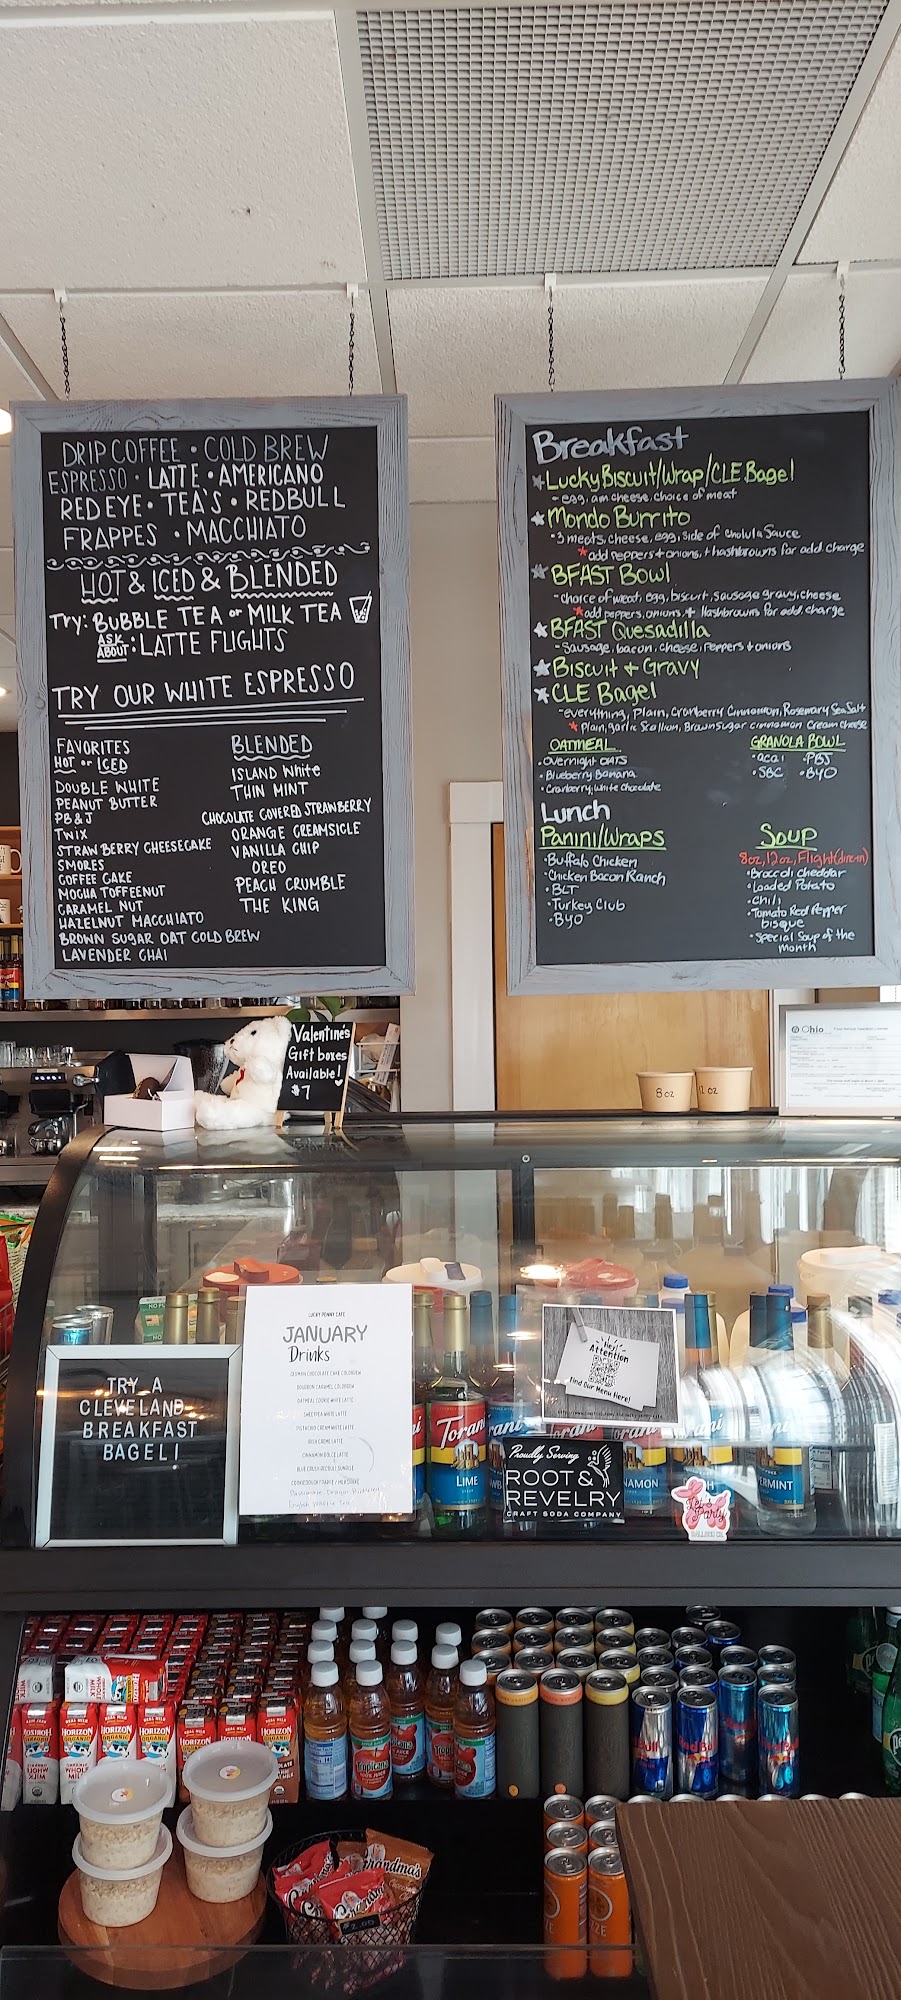 DRIP COFFEE • COLD BREW
ESPRESSO • LATTE • AMERICANO
RED EYE • TEA'S • REDBULL
FRAPPES • MACCHIATO
HOT & ICED & BLENDED
Try: BUBBLE TEA or MILK TEA
ASK ABOUT: LATTE FLIGHTS
TRY OUR WHITE ESPRESSO
FAVORITES
HOT or ICED
DOUBLE WHITE
PEANUT BUTTER
PB & J
Twix
STRAWBERRY CHEESECAKE
SMORES
COFFEE CAKE
MOCHA TOFFEENUT
CARAMEL NUT
HAZELNUT MACCHIATO
BROWN SUGAR OAT COLD BREW
LAVENDER CHAI
BLENDED
ISLAND White
THIN MINT
CHOCOLATE COVERED STRAWBERRY
ORANGE CREAMSICLE
VANILLA CHIP
OREO
PEACH CRUMBLE
THE KING
Breakfast
Lucky Biscuit/Wrap/CLE Bagel
- egg, am cheese, choice of meat
Mondo Burrito
- 3 meats, cheese, egg, side of Cholula Sauce
*add peppers + onions, + hashbrowns for add. charge
BFAST Bowl
- choice of meat, egg, biscuit, sausage gravy, cheese
*add peppers, onions, + Hashbrowns for add. charge
BFAST Quesadilla
- Sausage, bacon, cheese, Peppers + onions
Biscuit + Gravy
CLE Bagel
- everything, Plain, Cranberry Cinnamon, Rosemary Sea Salt
* Plain, garlic Scallion, Brown Sugar cinnamon Cream Cheese
OATMEAL
• Overnight OATS
• Blueberry Banana
• Cranberry, White Chocolate
GRANOLA BOWL
• acai • PBJ
• SBC • BYO
Lunch
Panini/Wraps
• Buffalo Chicken
• Chicken Bacon Ranch
• BLT
• Turkey Club
• BYO
Soup
8oz, 12oz, Flight (dine in)
• Broccoli cheddar
• Loaded Potato
• Chili
• Tomato Red Pepper
bisque
• Special Soup of the
month
Valentine's
Gift boxes
Available!
$7
8 oz
12 oz
Ohio
TRY A
CLEVELAND
BREAKFAST
BAGEL!
LUCKY PENNY CAFE
JANUARY
Drinks
GERMAN CHOCOLATE CAKE COLDBREW
BOURBON CARAMEL COLDBREW
OATMEAL COOKIE WHITE LATTE
SWEETPEA WHITE LATTE
PISTACHIO CREAM WHITE LATTE
IRISH CREME LATTE
CINNAMON DOLCE LATTE
Hey!
Attention
Find Our Menu Here!
Torani
LIME
Proudly Serving
ROOT &
REVELRY
CRAFT SODA COMPANY
HORIZON
ORGANIC
WHOLE
MILK
Tropicana
Red Bull
Grandma's
$2.00